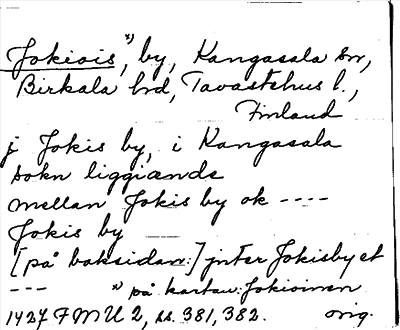 Jokiois *), by, Kangasala sn,
Birkala hd, Tavastehus l.,
Finland
j Jokis by, i Kangasala
sokn liggiande
mellan Jokis by ok ----
Jokis by
[på baksidan:] jnter Jokisby et
--- *) på kartan Jokioinen
1427 FMU 2, ss. 381, 382. orig.